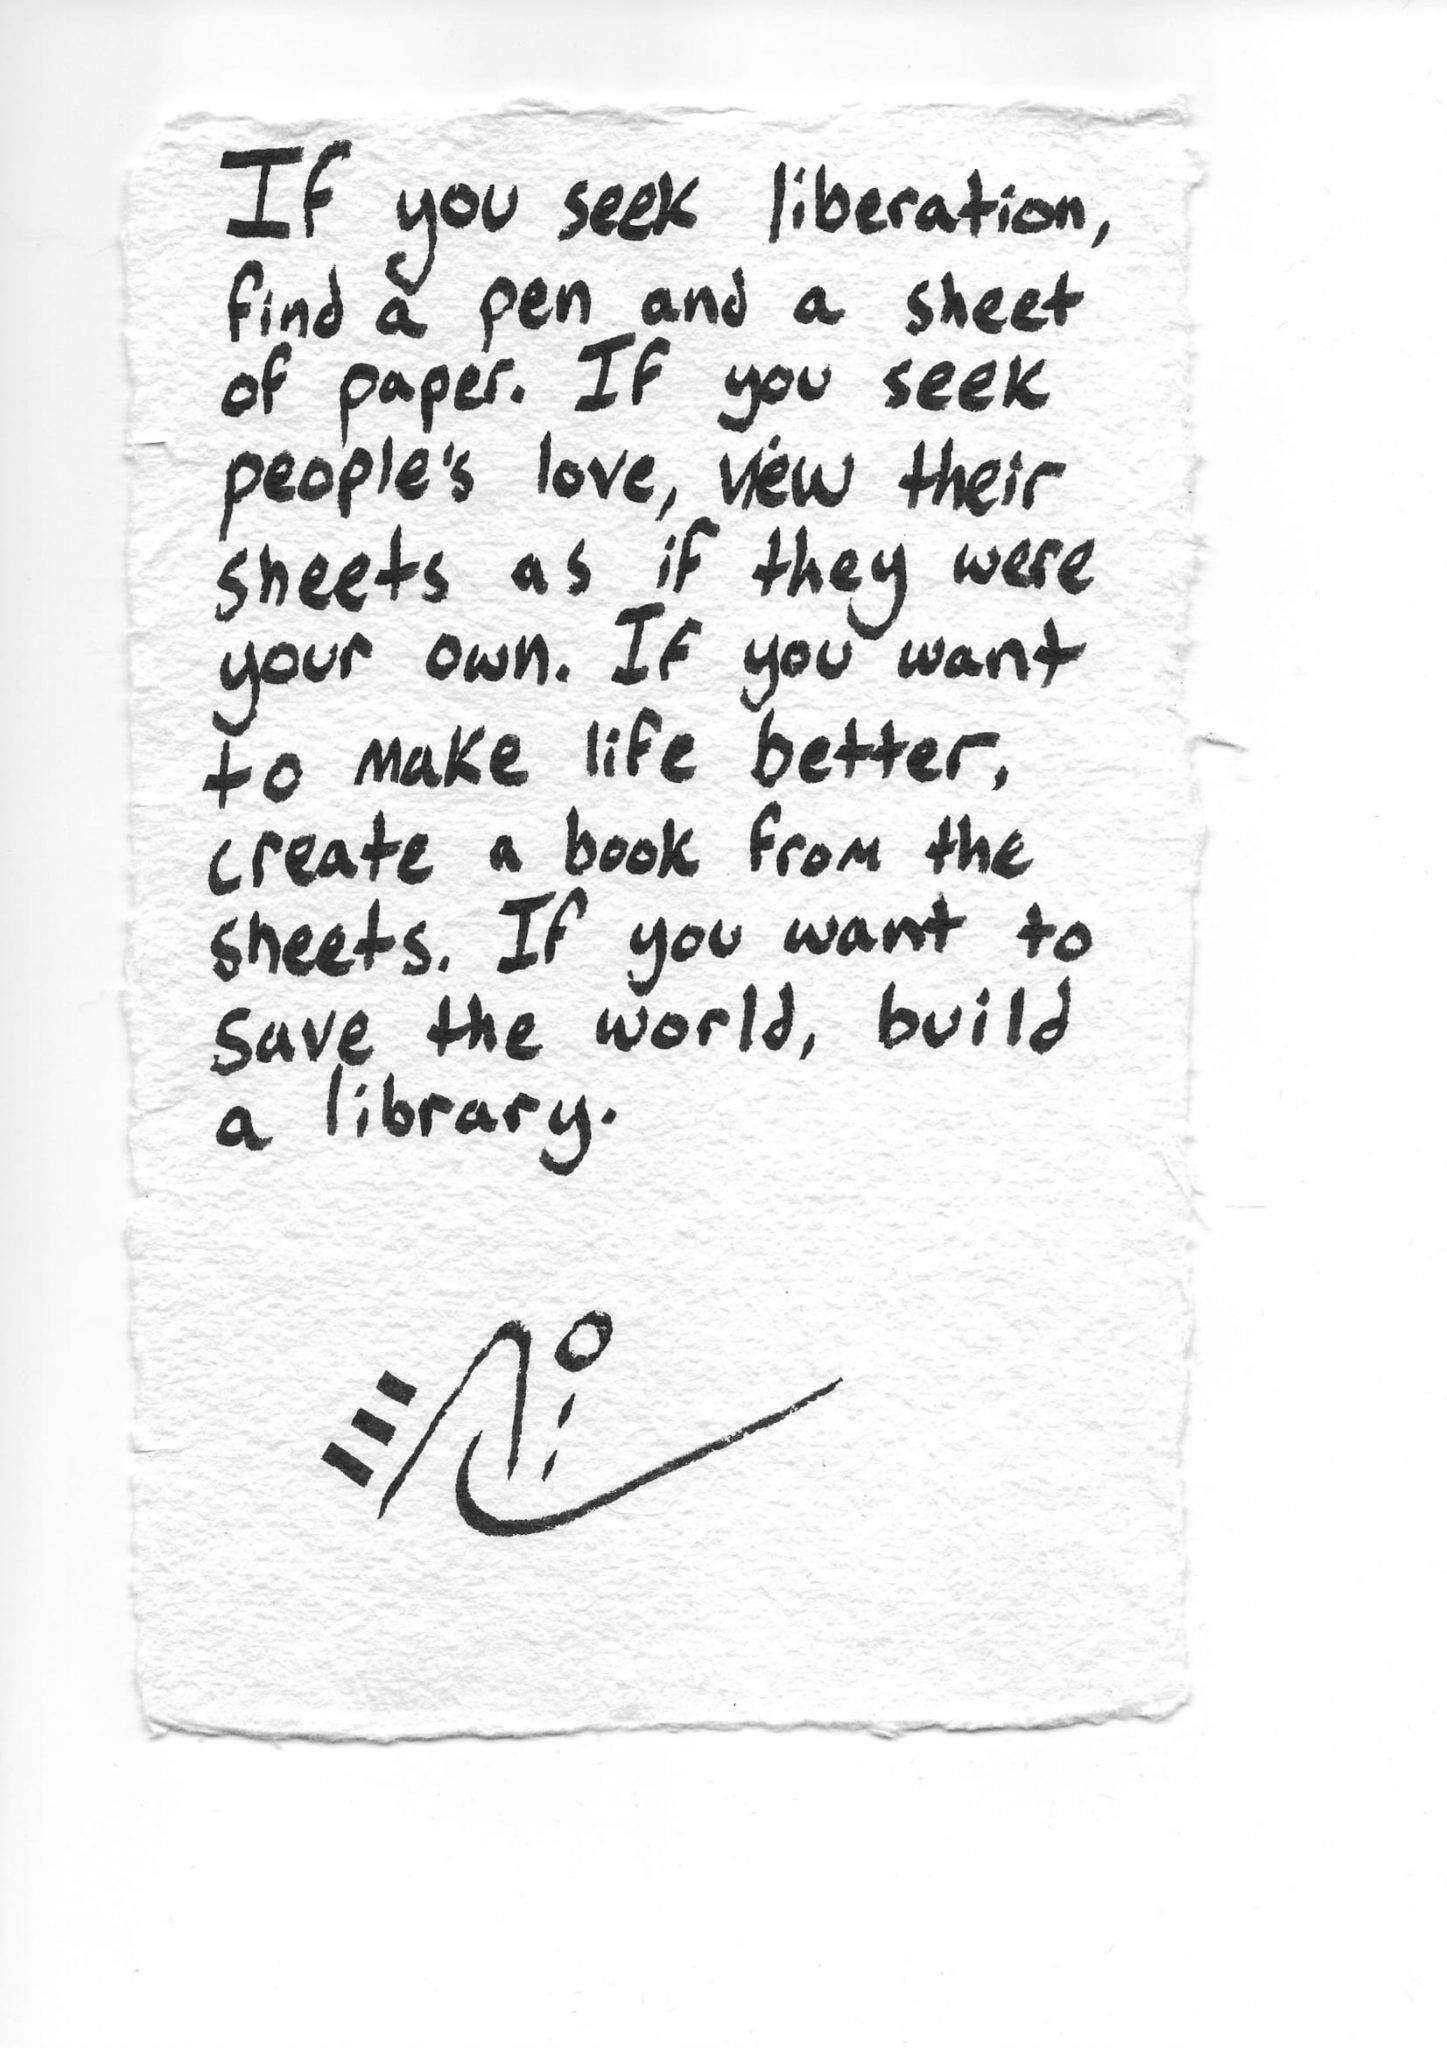 If you seek liberation,
find a pen and a sheet
of paper. If you seek
people's love, view their
sheets as if they were
your own. If you want
to make life better,
create a book from the
sheets. If you want to
save the world, build
a library.